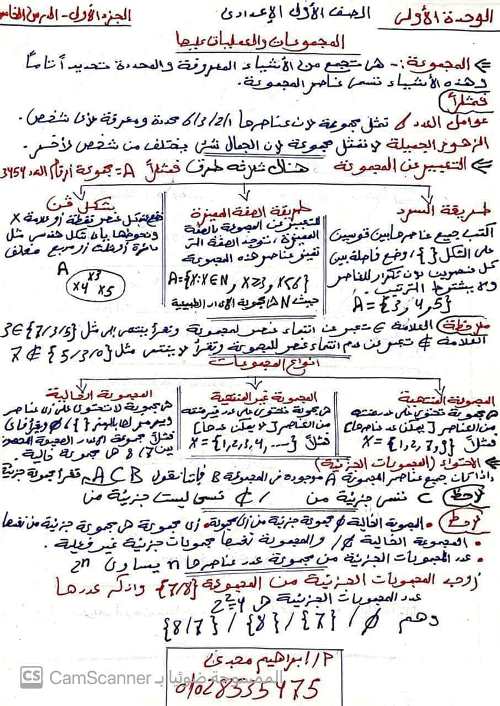 الوحدة الأولى
الصف الأول الإعدادى
الجزء الأول - الدرس الخامس
المجموعات والعمليات عليها
المجموعة :- هى تجمع من الأشياء المعروفة والمحددة تحديداً تاماً
وهذه الأشياء تسمى عناصر المجموعة.
فمثلاً
عوامل العدد 6 تمثل مجموعة لأن عناصرها 1/2/3/6 محددة ومعروفة لأى شخص.
الزهور الجميلة لا تمثل مجموعة لأن الجمال شئ يختلف من شخص لآخر.
التعبير عن المجموعة هناك ثلاثة طرق فمثلاً A = مجموعة أرقام العدد 3454
طريقة السرد
اكتب جميع عناصرها بين قوسين
على الشكل { } ، وضع فاصلة بين
كل عنصرين بدون تكرار للعناصر
ولا يشترط الترتيب.
A = {3,4,5}
طريقة الصفة المميزة
للتعبير عن المجموعة بالصفة
المميزة، نوجد الصفة التى
تميز عناصر هذه المجموعة
A = {X:X∈N , X≥3, X<6}
حيث N مجموعة الأعداد الطبيعية
بشكل فن
كل عنصر نقطة أو علامة X
ونحوطها بأى شكل هندسى مثل
دائرة أو مثلث أو مربع مغلف
A
x3
x4 x5
ملاحظة العلامة ∈ تعبر عن انتماء عنصر لمجموعة وتقرأ ينتمى إلى مثل 3∈{7/3/5}
العلامة ∉ تعبر عن عدم انتماء عنصر للمجموعة وتقرأ لا ينتمى مثل 7∉{5/3/0}
أنواع المجموعات
المجموعة المنتهية
هى مجموعة تحتوى على عدد منته
من العناصر [يمكن عد عناصرها]
فمثلاً X = {1,2,7,3}
المجموعة غير المنتهية
هى مجموعة تحتوى على عدد غير منته
من العناصر [لا يمكن عدها]
فمثلاً X = {1,2,3,4,...}
المجموعة الخالية
هى مجموعة لا تحتوى على أى عناصر
ويرمز لها بالرمز { } / Ø وتقرأ فاى
فمثلاً مجموعة الأعداد الصحيحة المحصورة
بين 7/8 هى مجموعة خالية.
الاحتواء (المجموعات الجزئية)
إذا كانت جميع عناصر المجموعة A موجودة فى المجموعة B فإننا نقول A⊂B وتقرأ مجموعة جزئية
لاحظ ⊂ تسمى جزئية من / ⊄ تسمى ليست جزئية من
لاحظ • المجموعة الخالية Ø مجموعة جزئية من أى مجموعة • أى مجموعة هى مجموعة جزئية من نفسها
• المجموعة الخالية Ø / والمجموعة نفسها مجموعات جزئية غير فعلية.
• عدد المجموعات الجزئية من مجموعة عدد عناصرها n يساوى 2ⁿ
أوجد المجموعات الجزئية من المجموعة {7/8} واذكر عددها
عدد المجموعات الجزئية هى 2²=4
وهم Ø / {7} / {8} / {8/7}
م/ ابراهيم مجدى
01028535475
CS CamScanner الممسوحة ضوئيا بـ